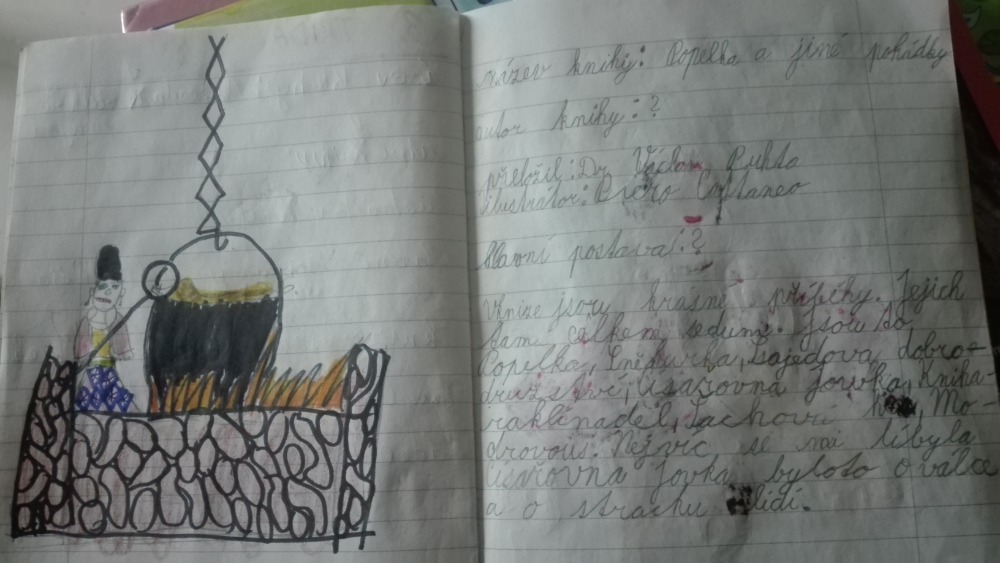 název knihy: Popelka a jiné pohádky
autor knihy: ?
přeložil: Dr. Václav
ilustrátor: Piero Cattaneo
hlavní postava: ?
Vknize jsou krásné příběhy. Jejich
tam celkem sedum. Jsou to
Popelka, Sněhurka, dobro-
družství, Kniha
zaklínadel, Šachoví Mo-
drovous. Nejvíc se mi líbyla
byloto o valce
a o strachu lidí.